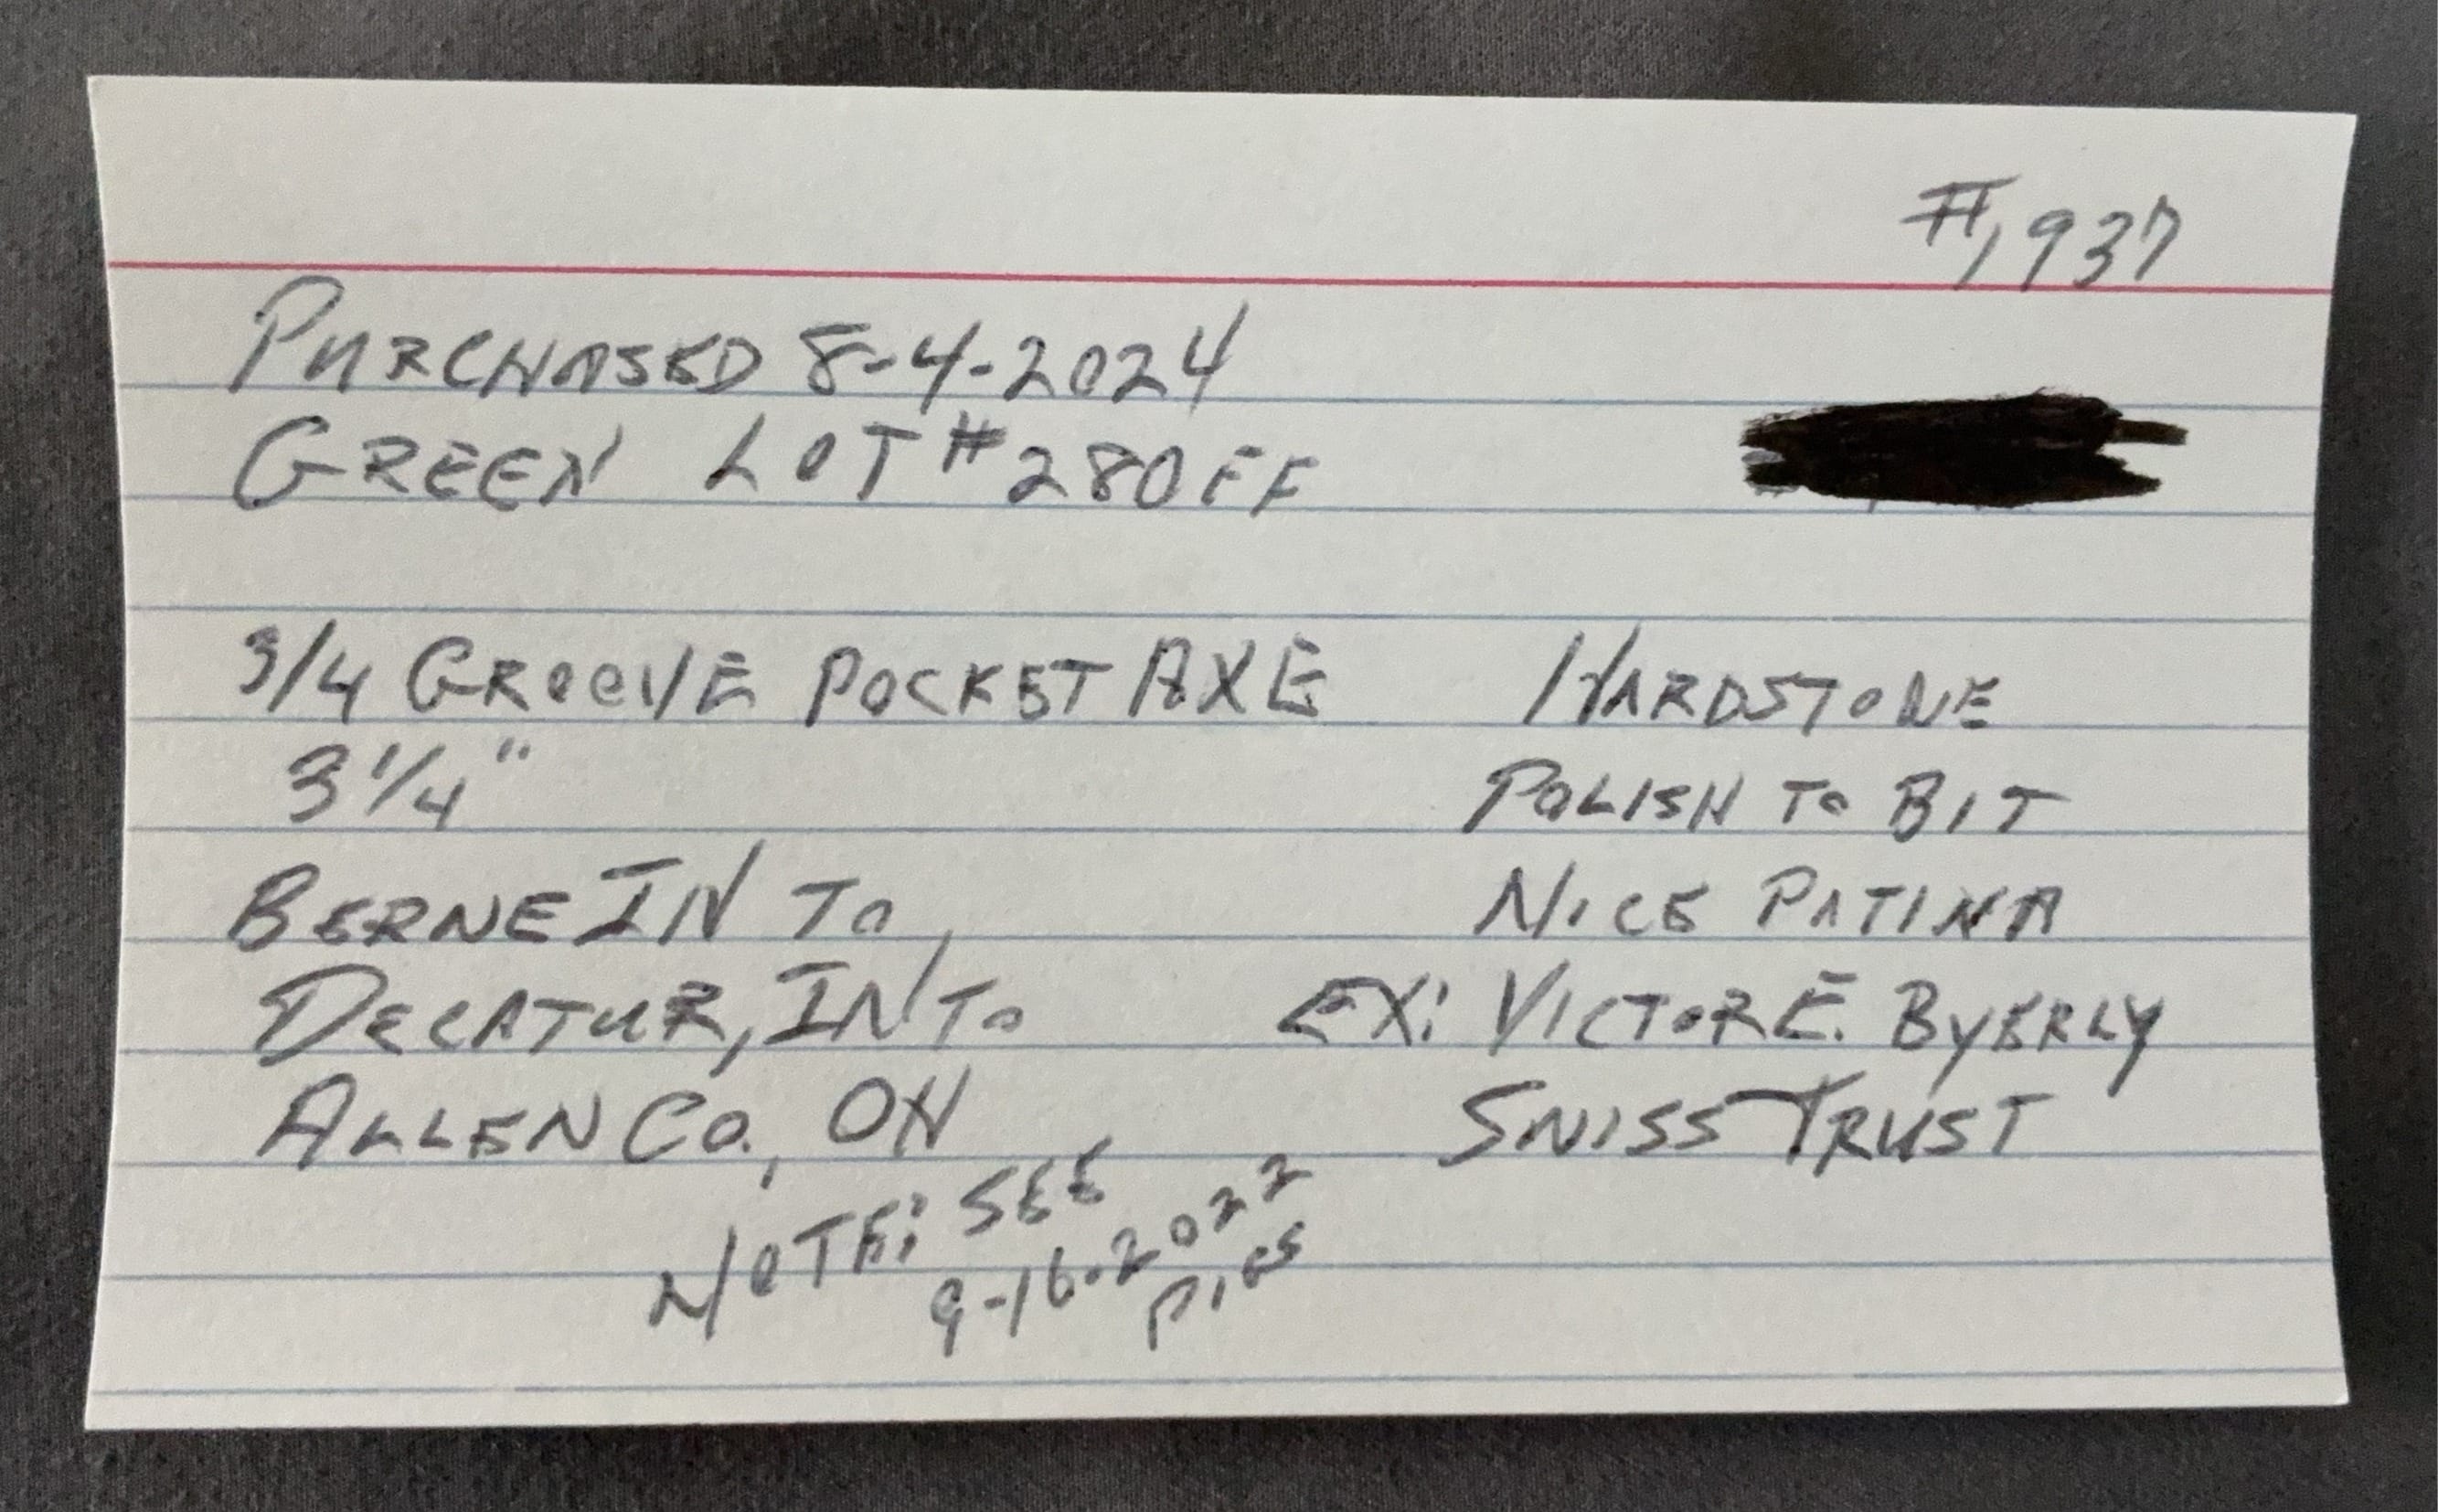 #1,937
PURCHASED 8-4-2024
GREEN LOT #280FF
3/4 GROOVE POCKET AXE
3 1/4"
BERNE IN TO
DECATUR, IN TO
ALLEN CO., OH
NOTE: SEE
9-16-2022
PICS
HARDSTONE
POLISH TO BIT
NICE PATINA
EX: VICTOR E. BYERLY
SWISS TRUST